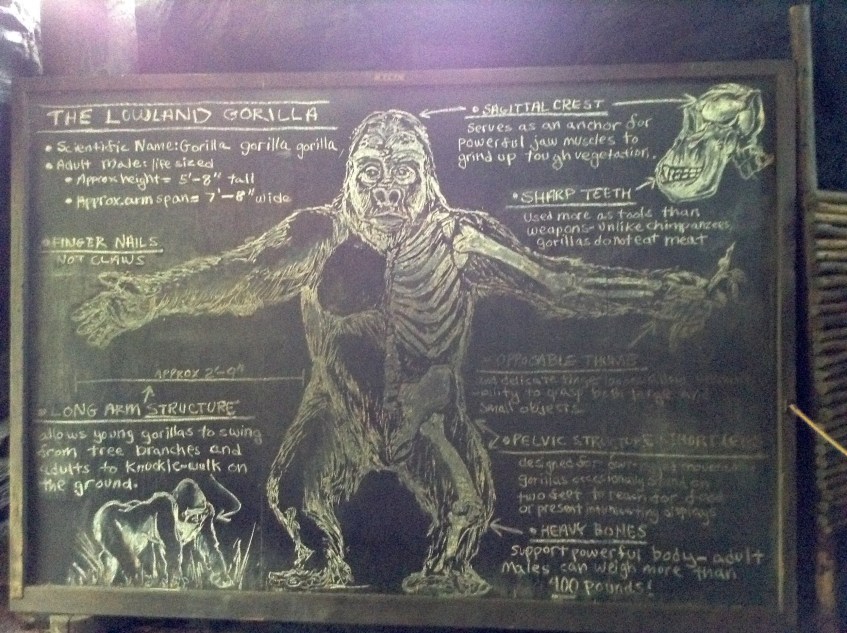 THE LOWLAND GORILLA
• Scientific Name: Gorilla gorilla gorilla
• Adult Male: life sized
• Approx height = 5'-8" tall
• Approx. arm span = 7'-8" wide
• FINGER NAILS
NOT CLAWS
APPROX
• LONG ARM STRUCTURE
allows young gorillas to swing
from tree branches and
adults to knuckle-walk on
the ground.
• SAGITTAL CREST
Serves as an anchor for
powerful jaw muscles to
grind up tough vegetation.
• SHARP TEETH
Used more as tools than
weapons- Unlike chimpanzees,
gorillas do not eat meat
• OPPOSABLE THUMB
and delicate finger
ability to grasp both large and
small objects
• PELVIC STRUCTURE SHORT LEGS
designed for four-legged movement
gorillas occasionally stand on
two feet to reach for food
or present intimidating displays
• HEAVY BONES
Support powerful body- adult
Males can weigh more than
400 pounds!